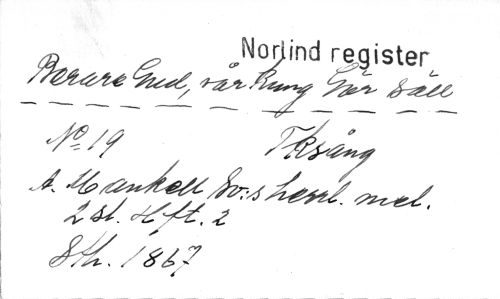 Norlind register
Bevare Gud, vår kung Gör säll
No 19 Tksång
A. Mankell Sv:s herrl. mel.
2 st. Hft. 2
Sth. 1867